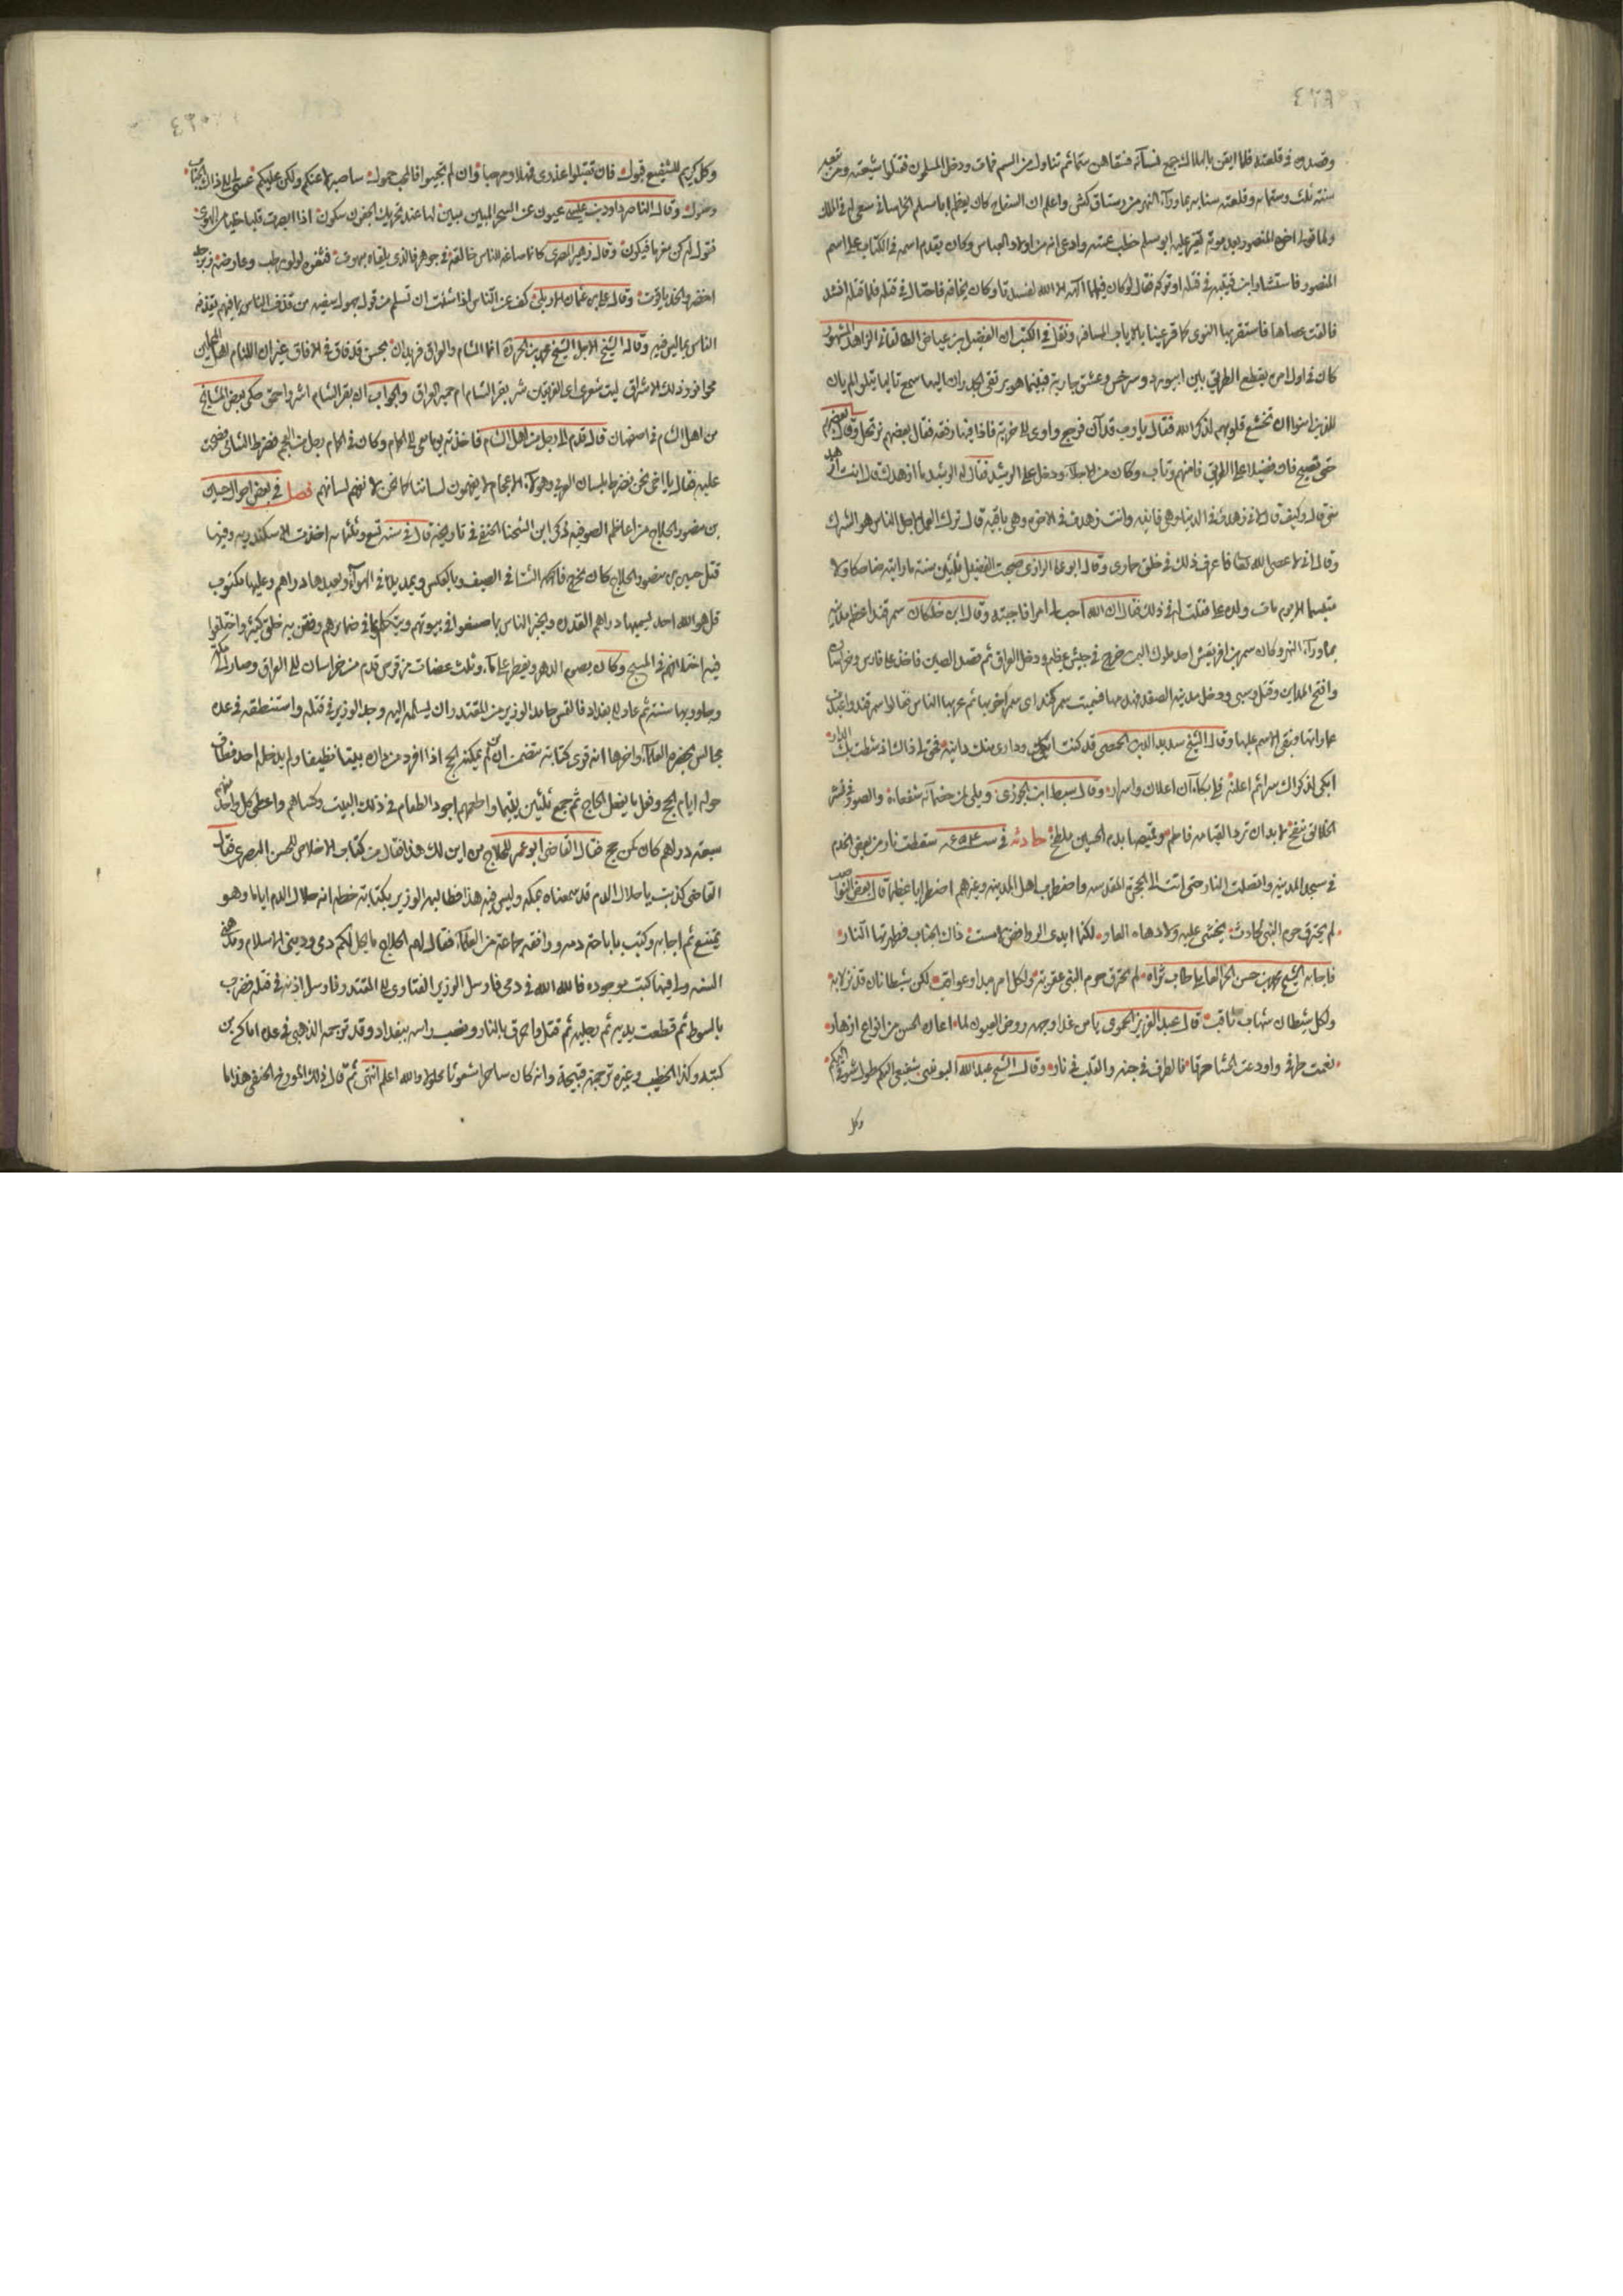 وقصدوه في قلعته فلما ايقن بالهلاك جمع نساءه فسقاهن سما ثم تناول من السم فمات ودخل المسلمون فقتلوا شيعته ومن تبعه
سنة ثلث وستمائه وقلعته سنابه بما ورآء النهر من رستاق كش واعلم ان السفاح كان يعظم ابا مسلم الخراساني سعى له في الملك
ولما تولى اخوه المنصور بعد موته تغير عليه ابو مسلم خطب عمته وادعى انه من اولاد العباس وكان يقدم اسمه في الكتاب على اسم
المنصور فاستشار ابن قتيبه في قتله او تركه فقال لو كان فيهما آلهة الا الله لفسدتا وكان يخافه فاحتال في قتله فلما قتله انشد
فالقت عصاها فاستقر بها النوى كما قر عينا بالاياب المسافر ونقل في الكتب ان الفضيل بن عياض الطالقاني الزاهد المشهور
كان في اول امره يقطع الطريق بين ابيورد وسرخس وعشق جارية فبينما هو يرتقي الجدران اليها سمع تاليا يتلوا الم يان
للذين امنوا ان تخشع قلوبهم لذكر الله فقال يا رب قد آن فرجع واوى الى خربة فاذا فيها رفقه فقال بعضهم نرتحل وقال بعضهم
حتى نصبح فان فضيلا على الطريق فامنهم وتاب وكان من الاجلآء ودخل على الرشيد فقال له الرشيد ما ازهدك قال انت ازهد
مني قال وكيف قال لاني زهدت في الدنيا وهي فانيه وانت زهدت في الاخره وهي باقيه قال ترك العمل لاجل الناس هو الشرك
وقال اني لاعصي الله تعالى فاعرف ذلك في خلق حماري وقال ابو علي الرازي صحبت الفضيل ثلثين سنة ما رايته ضاحكا ولا
متبسما الا يوم مات ولده علي فقلت له في ذلك فقال ان الله احب امرا فاحببته وقال ابن خلكان سمرقند اعظم مدينه
بما ورآء النهر وكان سمر بن افريقش احد ملوك اليمن خرج في جيش عظيم ودخل العراق ثم قصد الصين فاخذ على فارس وخراسان
وافتتح المداين وقتل وسبى ودخل مدينه الصغد فهدمها فسميت سمركند اي سمر اخربها ثم عربها الناس فقالوا سمرقند واعيدت
عمارتها وبقي الاسم عليها وقال الشيخ سديد الدين الحمصي قد كنت ابكي وداري منك دانية فحق لي ذاك اذ شطت بك الدار
ابكي لذكراك سرا ثم اعلنه فلي بكاآن اعلان واسرار وقال سبط ابن الجوزي ويل لمن خصمآئه شفعاؤه والصور في نشر
الخلائق ينفخ لا بد ان ترد القيامه فاطم وقميصها بدم الحسين ملطخ حادثه في سنه ٦٥٤ سقطت نار من بعض الخدم
في مسجد المدينه واتصلت النار حتى انتهت الى الحجرة المقدسه واضطرب اهل المدينه وغيرهم اضطرابا عظيما قال بعض النواصب
لم يحترق حرم النبي لحادث يخشى عليه ولا دهاه العار لكنما ايدي الروافض لامست ذاك الجناب فطهرته النار
فاجابه الشيخ محمد بن حسن الحر العاملي طاب ثراه لم يحترق حرم النبي عقوبة ولكل امر مبدا وعواقب لكن شيطانان قد نزلا به
ولكل شيطان شهاب ثاقب قال عبد العزيز الحموي يا من غدا وجهه روض العيون لما اعاره الحسن من انواع ازهار
نعمت طرفي واودعت الحشا حرقا فالطرف في جنه والقلب في نار وقال الشيخ عبد الله البوفى شفيعي اليكم طول شوقي اليكم
وكل
وكل كريم للشفيع قبول فان تقبلوا عذري فاهلا ومرحبا وان لم تجيبوا فالمحب حمول ساصبر لا عنكم ولكن عليكم عسى لي الى ذاك الجناب
وصول وقال الناصر داود بن عيسى عيون عن السحر المبين تبين لها عند تحريك الجفون سكون اذا ابصرت قلبا خليا من الهوى
تقول له كن مغرما فيكون وقال زهير المصري كانما صاغه للناس خالقه في جوهر فالذي يلقاه مبهوت فثغره لولو رطب وعارضه زبرجد
اخضر والخد ياقوت وقال علي بن عثمان الاربلي كف عن الناس اذا شئت ان تسلم من قول جهول سفيه من قذف الناس بما فيهم يقذفه
الناس بما ليس فيه وقال الشيخ الاجل الشيخ محمد بن الحر انما الشام والعراق فريدان بحسن قد فاق في الافاق غير ان اللئام اهل المحلين
محوا نور ذلك الاشراق ليت شعري اي الفريقين شر بقر الشام ام حمير العراق والجواب ان بقر الشام اشر واحمق حكى بعض المشايخ
من اهل الشام في اصفهان قال قدم الي رجل من اهل الشام فاخذته يوما معي الى الحمام وكان في الحمام رجل من العجم فضرط الشامي فضحكت
عليه فقال يا اخي نحن نضرط بلسان العربي وهؤلآء الاعجام لا يفهمون لساننا كما نحن لا نفهم لسانهم فصل في بعض احوال حسين
بن منصور الحلاج من اعاظم الصوفيه ذكر ابن الشحنا الحنفي في تاريخه قال في سنه تسع وثلثمائه اخذت الاسكندريه وفيها
قتل حسين بن منصور الحلاج كان يخرج فاكهة الشتا في الصيف وبالعكس ويمد يده في الهوآء ويعيدها دراهم وعليها مكتوب
قل هو الله احد يسميها دراهم القدره ويخبر الناس بما صنعوا في بيوتهم ويتكلم بما في ضمايرهم وفتن به خلق كثير واختلفوا
فيه اختلافهم في المسيح وكان يصوم الدهر ويفطر على مآء وثلث عضات من قرص قدم من خراسان الى العراق وصار الى مكه
وجاور بها سنة ثم عاد الى بغداد فالتمس حامد الوزير من المقتدر ان يسلمه اليه وجد الوزير في قتله واستنطقه في عدة
مجالس بحضرة العلمآء واخرها انه قرئ كتابة تتضمن ان من لم يمكنه الحج اذا افرد من داره بيتا نظيفا ولم يدخله احد فطاف
حوله ايام الحج وفعل ما يفعل الحاج ثم جمع ثلثين يتيما واطعمهم اجود الطعام في ذلك البيت وكساهم واعطى كل واحد منهم
سبعه دراهم كان كمن حج فقال القاضي ابو عمر للحلاج من اين لك هذا فقال من كتاب الاخلاص للحسن البصري فقال
القاضي كذبت يا حلال الدم قد سمعناه بمكه وليس فيه هذا فطالبه الوزير بكتابة خطه انه حلال الدم اياما وهو
يمتنع ثم اجابه وكتب باباحة دمه ووافقه جماعة من العلمآء فقال لهم الحلاج ما يحل لكم دمي وديني الاسلام ومذهبي
السنه ولي فيها كتب موجوده فالله الله في دمي فارسل الوزير الفتاوى الى المقتدر فارسل اذنه في قتله فضرب
بالسوط ثم قطعت يديه ثم رجليه ثم قتل واحرق بالنار ونصب راسه ببغداد وقد ترجمه الذهبي في عدة اماكن من
كتبه وكذا الخطيب وغيره ترجمة قبيحة وانه كان ساحرا مشعوذا حلوليا والله اعلم انتهى ثم قال ذلك المورخ الحنفي هذا ما